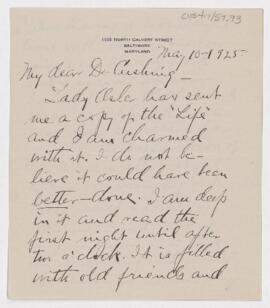 CUS417/59.93
1208 NORTH CALVERT STREET
BALTIMORE
MARYLAND
May 10-1925
My dear Dr. Cushing -
Lady Osler has sent
me a copy of the "Life"
and I am charmed
with it. I do not be-
lieve it could have been
better-done. I am deep
in it and read the
first night until after
two o'clock. It is filled
with old friends and